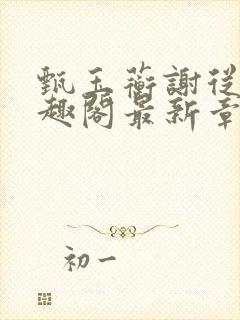 甄玉蘅謝從
趣閣最新章
初一